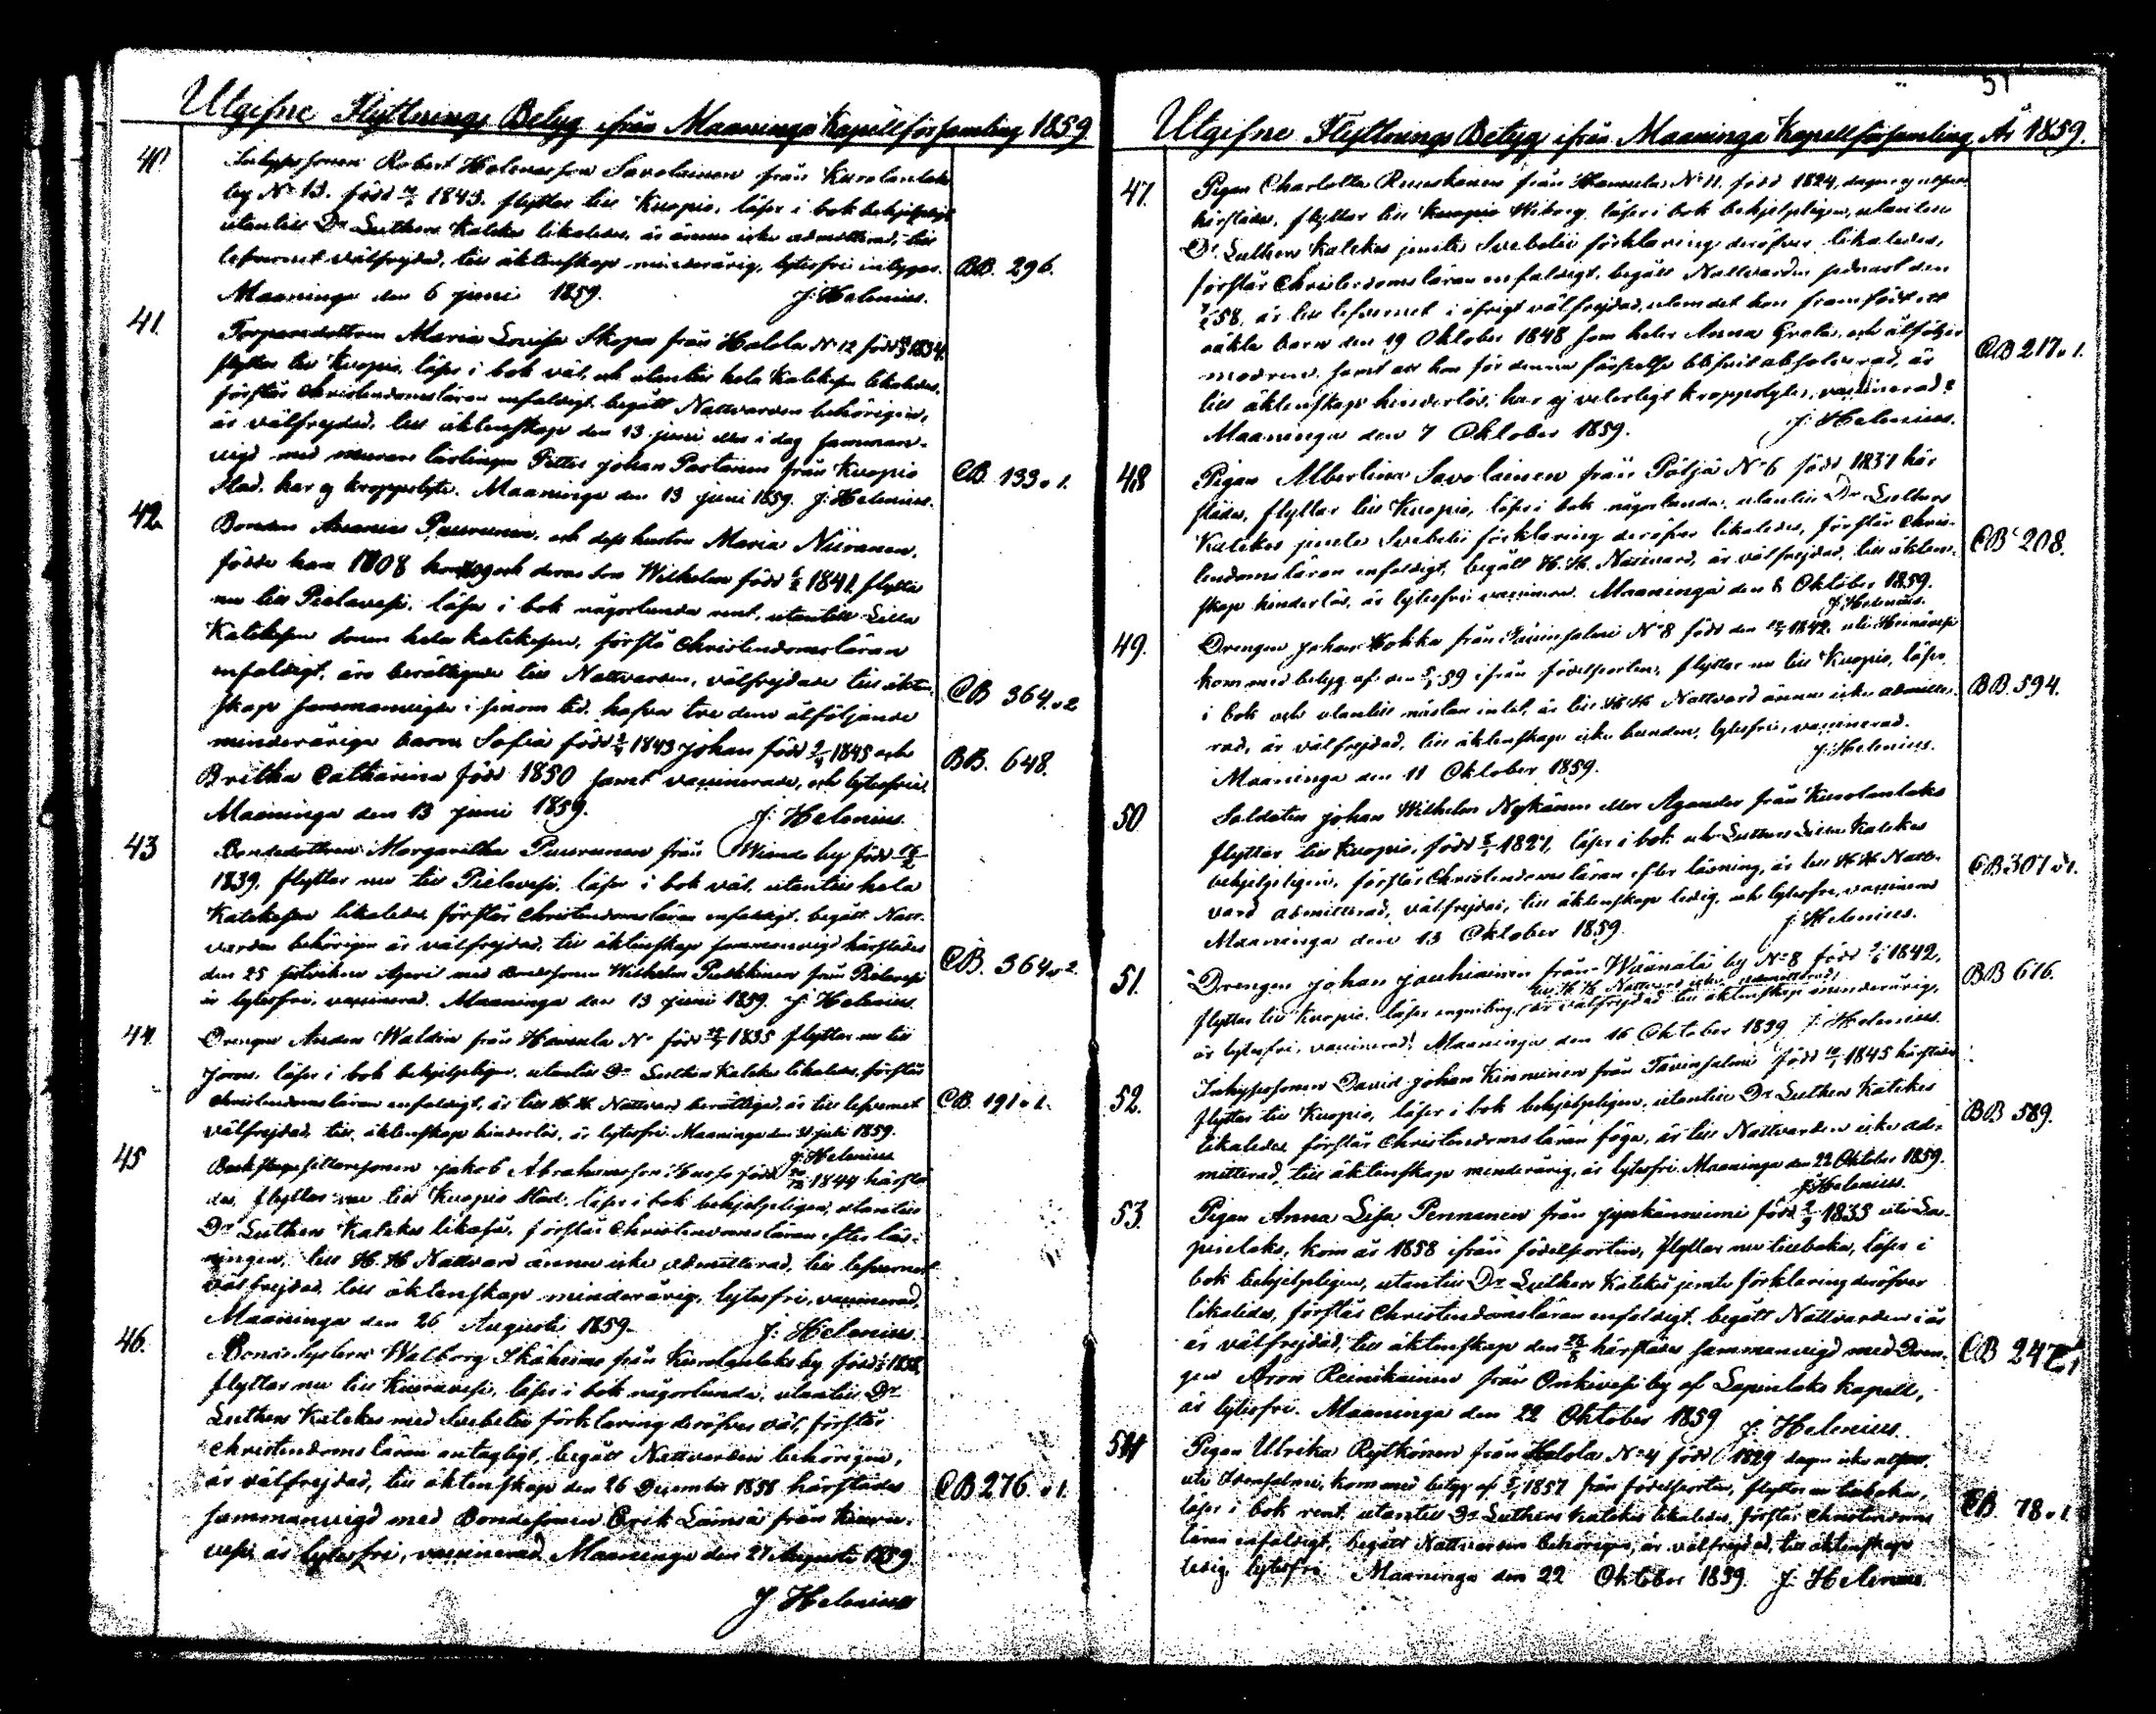 Utgifne Flyttnings Betyg ifrån Maaninga Kapellförsamling 1859.
40. Robert Holmesson Savolainen från Kurolanlaks
by No 13. född 1843. flyttar till Kuopio, läser i bok behjelpligt
utantill Dr Luthers Katekes likaledes, är ännu icke admitterad, till
lefvernet välfrejdad, till äktenskap minderårig, lytesfri intygar. BB. 296.
Maaninga den 6 juni 1859. J: Helenius.
41. Maria Lovisa Skopa från Halola No 12 född 1834.
flyttar till Kuopio, läser i bok väl, och utantill hela Katekesen likaledes,
förstår christendomsläran enfaldigt, begått Nattvarden behörigen,
är välfrejdad, till äktenskap den 13 juni eller i dag samman-
vigd med lärlingen Petter Johan Partanen från Kuopio
Stad. har ej kroppslyte. Maaninga den 13 juni 1859. J: Helenius. CB 133 v 1.
42. Bonden Puurunen, och dess hustru Maria Niiranen,
födde han 1808 hon och deras son Wilhelm född 1841, flytta
nu till Pielavesi, läsa i bok någorlunda rent, utantill Lilla
Katekesen sonen hela katekesen, förstå Christendomsläran
enfaldigt, äro berättigade till Nattvarden, välfrejdade till äkten-
skap sammanvigde i sinom tid. hafva tre dem åtföljande CB 364. v 2
minderåriga barn Sofia född 1843 Johan född 1845 och
Britha Catharina född 1850 samt vaccinerade, och lytesfria. BB. 648.
Maaninga den 13 juni 1859. J: Helenius
43 Bondedottren Margaretha Puurunen från Wianto by född
1839, flyttar nu till Pielavesi, läser i bok väl, utantill hela
Katekesen likaledes, förstår christendomsläran enfaldigt, begått Natt-
varden behörigen är välfrejdad, till äktenskap sammanvigd härstädes
den 25 April med Bondesonen Wilhelm från Pielavesi CB. 364 v 2.
är lytesfri, vaccinerad. Maaninga den 13 juni 1859. J: Helenius.
44. Drengen Anders Waldin från Haminla No född 1835 flyttar nu till
läser i bok behjelpligen, utantill Dr Luthers Katekes likaledes, förstår
christendomsläran enfaldigt, är till H. H. Nattvard berättigad, är till lefvernet CB. 191 v 1.
välfrejdad, till äktenskap hinderlös, är lytesfri. Maaninga den 31 juli 1859.
J: Helenius.
45 Jakob Abrahamsson född 1844 härstä-
des, flyttar nu till Kuopio stad, läser i bok behjelpligen, utantill
Dr Luthers Katekes likaså, förstår Christendomsläran efter läs-
ningen, till H. H Nattvard ännu icke admitterad, till lefvernet
välfrejdad, till äktenskap minderårig, lytesfri, vaccinerad,
Maaninga den 26 Augusti 1859. J: Helenius.
46. Walborg från Kurolanlaks by, född 1838,
flyttar nu till Kiuruvesi, läser i bok någorlunda, utantill Dr
Luthers Katekes med Svebelii förklaring deröfver väl, förstår
Christendomsläran antagligt, begått Nattvarden behörigen,
är välfrejdad, till äktenskap den 26 December 1858 härstädes CB 276. v 1.
sammanvigd med Bondesonen Erik Lämsä från Kiuru-
vesi är lytesfri, vaccinerad. Maaninga den 27 Augusti 1859.
J Helenius
51
Utgifne Flyttnings Betyg ifrån Maaninga Kapellförsamling År 1859.
47. Pigan Charlotta Ruuskanen från Haminla No 11. född 1824, dagen ej
härstädes, flyttar till Kuopio Wiborg, läser i bok behjelpligen, utantill
Dr Luthers Katekes jemte Svebelii förklaring deröfver likaledes,
förstår Christendomsläran enfaldigt, begått Nattvarden sednast den
58, är till lefvernet i öfrigt välfrejdad, utom det hon framfödt ett
oäkta barn den 19 Oktober 1848 som heter Anna Greta, och åtföljer CB 217 v 1.
modren, samt att hon för denna förseelse blifvit absolverad, är
till äktenskap hinderlös, har ej veterligt kroppslyte, vaccinerad.
Maaninga den 7 Oktober 1859. J: Helenius.
48 Pigan Albertina Savolainen från Pöljä No 6 född 1837 här
städes, flyttar till Kuopio, läser i bok någorlunda, utantill Dr Luthers
Katekes jemte Svebelii förklaring deröfver likaledes, förstår Chris-
tendomsläran enfaldigt, begått H. H. Nattvard, är välfrejdad, till äkten- CB 208.
skap hinderlös, är lytesfri vaccinerad. Maaninga den 8 Oktober 1859.
J: Helenius.
49. Drengen Johan Hokka från Tavinsalmi No 8 född den 1842, uti
kom med betyg af den 59 ifrån födelseorten, flyttar nu till Kuopio, läser
i bok och utantill nästan intet, är till H. H. Nattvard ännu icke admitte- BB. 594.
rad, är välfrejdad, till äktenskap icke bunden, lytesfri, vaccinerad.
Maaninga den 11 Oktober 1859. J: Helenius.
50 Soldaten Johan Wilhelm Nykänen eller Agander från Kurolanlaks
flyttar till Kuopio, född 1827, läser i bok och Luthers Lilla Katekes
behjelpligen, förstår Christendomsläran efter läsning, är till H. H. Natt- CB 307 v 1.
vard admitterad, välfrejdad, till äktenskap ledig, och lytesfri, vaccinerad
Maaninga den 13 Oktober 1859 J: Helenius.
51. Drengen Johan Jauhiainen från Wäänälä by No 8 född 1842, BB 616.
till H. H. Nattvard icke admitterad,
flyttar till Kuopio, läser är välfrejdad till äktenskap minderårig,
är lytesfri, vaccinerad, Maaninga den 16 Oktober 1859 J: Helenius.
52. David Johan Kinnunen från Tavinsalmi född 1845 härstädes
flyttar till Kuopio, läser i bok behjelpligen, utantill Dr Luthers Katekes
likaledes, förstår Christendomsläran föga, är till Nattvarden icke ad- BB 589.
mitterad, till äktenskap minderårig, är lytesfri. Maaninga den 22 Oktober 1859.
J: Helenius.
53. Pigan Anna Lisa Pennanen från född 1835 uti La-
pinlaks, kom år 1858 ifrån födelseorten, flyttar nu tillbaka, läser i
bok behjelpligen, utantill Dr Luthers Katekes jemte förklaring deröfver
likaledes, förstår Christendomsläran enfaldigt, begått Nattvarden i år
är välfrejdad, till äktenskap den härstädes sammanvigd med Dren- CB 247
gen Aron Reinikainen från Onkivesi by af Lapinlaks kapell,
är lytesfri. Maaninga den 22 Oktober 1859 J: Helenius.
54 Pigan Ulrika Rytkönen från Halola No 4 född 1829 dagen icke
uti Idensalmi, kom med betyg af 1857 från födelseorten, flyttar nu tillbaka,
läser i bok rent, utantill Dr Luthers katekes likaledes, förstår Christendoms CB 78 v 1.
läran enfaldigt, begått Nattvarden behörigen, är välfrejdad, till äktenskap
ledig, lytesfri Maaninga den 22 Oktober 1859. J: Helenius.